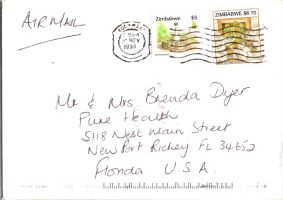 AIRMAIL
Zimbabwe $5
ZIMBABWE $6.70
NOV
Mr & Mrs Brenda Dyer
Pure Health
5118 West Main Street
New Port Richey FL 34652
Florida U.S.A.